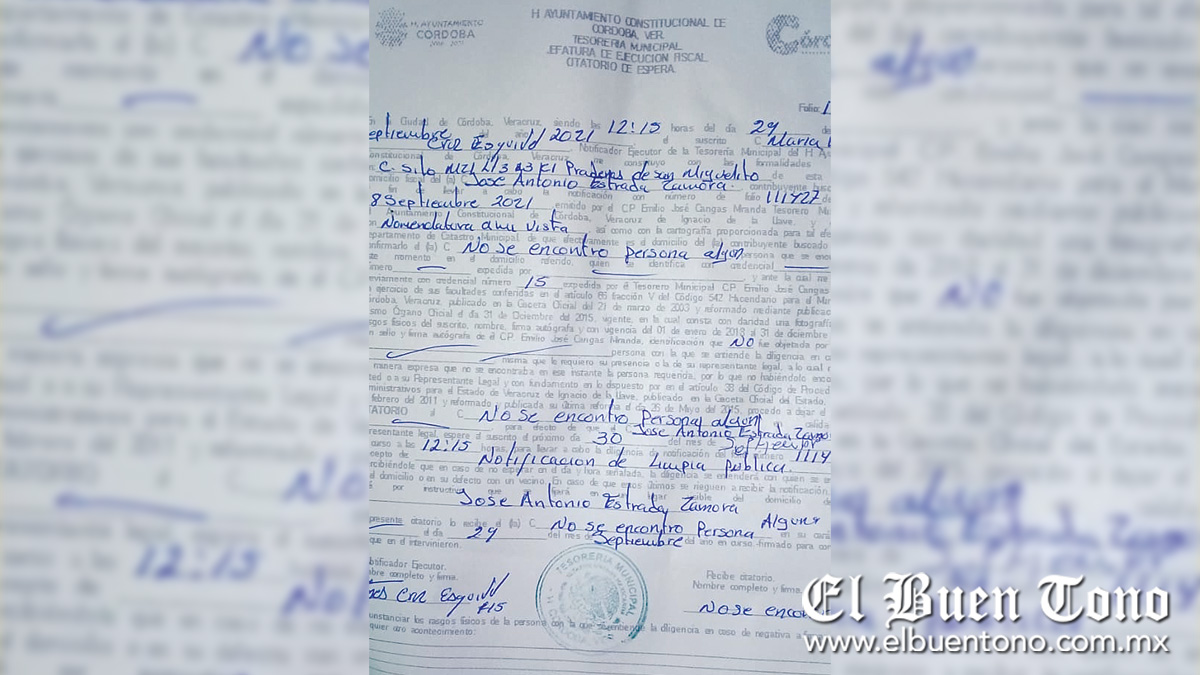 H. AYUNTAMIENTO
CÓRDOBA
H AYUNTAMIENTO CONSTITUCIONAL DE
CÓRDOBA, VER.
TESORERÍA MUNICIPAL
JEFATURA DE EJECUCIÓN FISCAL
CITATORIO DE ESPERA
Folio:
Ciudad de Córdoba, Veracruz, siendo las 12:15 horas del día 29 de
eptiembre del año 2021 el suscrito C. Maria
Cruz Esquivel Notificador Ejecutor de la Tesorería Municipal del H
onstitucional de Córdoba, Veracruz me constituyo con las formalidades
C. Silo MZ1 L13 #3 El Praderas de san Miguelito de esta
omicilio fiscal del (a) C. Jose Antonio Estrada Zamora. contribuyente
fin llevar a cabo la notificación con número de folio 111427
8 Septiembre 2021 emitido por el C.P. Emilio José Cangas Miranda Tesorero
Ayuntamiento Constitucional de Córdoba, Veracruz de Ignacio de la Llave, y
Nomenclatura a mi vista, así como con la cartografía proporcionada para tal
epartamento de Catastro Municipal de que efectivamente es el domicilio del (la) contribuyente buscado
onfirmarlo el (la) C. No se encontro persona algun persona que se
ste momento en el domicilio referido, quien se identifica con credencial
úmero expedida por y ante la cual me
eviamente con credencial número 15 expedida por el Tesorero Municipal C.P. Emilio José Cangas
ejercicio de sus facultades conferidas en el artículo 66 fracción V del Código 542 Hacendario para el
órdoba, Veracruz, publicado en la Gaceta Oficial del 21 de marzo de 2003 y reformado mediante
ismo Órgano Oficial el día 31 de Diciembre del 2015, vigente, en la cual consta con claridad una
asgos físicos del suscrito, nombre, firma autógrafa y con vigencia del 01 de enero de 2018 al 31 de diciembre
sello y firma autógrafa de el C.P. Emilio José Cangas Miranda, identificación que NO fue objetada por
persona con la que se entiende la diligencia, en
misma que le requiero su presencia o la de su representante legal, a lo cual
manera expresa que no se encontraba en ese instante la persona requerida, por lo que no habiéndole
ted o a su Representante Legal y con fundamento en lo dispuesto por en el artículo 38 del Código de
ministrativos para el Estado de Veracruz de Ignacio de la Llave, publicado en la Gaceta Oficial del Estado,
febrero del 2011 y reformado y publicada su última reforma el día 26 de Mayo del 2015, procedo a dejar el
TATORIO al C. No Se encontro Persona algun
para efecto de que el C. Jose Antonio Estrada Zamo
presentante legal, espere al suscrito el próximo día 30 del mes de
curso a las 12:15 horas, para llevar a cabo la diligencia de notificación del número 1114
cepto de Notificacion de Limpia Publica.
rcibiéndole que en caso de no esperar en el día y hora señalada, la diligencia se entenderá con quien se
el domicilio o en su defecto con un vecino. En caso de que estos últimos se nieguen a recibir la notificación,
por instructivo que fijará en lugar visible del domicilio
Jose Antonio Estrada Zamora
presente citatorio lo recibe el (la) C. No se encontro Persona Alguna en su
el día 29 del mes de Septiembre del año en curso, firmado para
que en el intervinieron.
otificador Ejecutor.
ombre completo y firma.
Cruz Esquivel
#15
TESORERÍA MUNICIPAL
Recibe citatorio.
Nombre completo y firma
No se enco
cunstanciar los rasgos físicos de la persona con la que se entiende la diligencia en caso de negativa a
quier otro acontecimiento:
El Buen Tono
www.elbuentono.com.mx